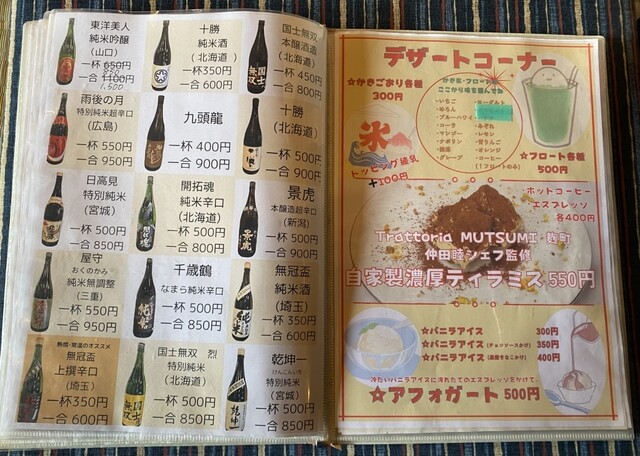 東洋美人
純米吟醸
(山口)
一杯 650円
一合 1100円
1,500
十勝
純米酒
(北海道)
一杯350円
一合600円
国士無双
本醸酒造
(北海道)
一杯 450円
一合 800円
雨後の月
特別純米超辛口
(広島)
一杯 550円
一合 950円
九頭龍
一杯 400円
一合 900円
十勝
(北海道)
一杯 500円
一合 900円
日高見
特別純米
(宮城)
一杯 500円
一合 850円
開拓魂
純米辛口
(北海道)
一杯 500円
一合 800円
景虎
本醸造超辛口
(新潟)
一杯 500円
一合 900円
屋守
おくのかみ
純米無調整
(三重)
一杯 550円
一合 950円
千歳鶴
なまら純米辛口
一杯 500円
一合 850円
無冠盃
純米酒
(埼玉)
一杯 350円
一合 600円
熱燗・常温のオススメ
無冠盃
上撰辛口
(埼玉)
一杯 350円
一合 600円
国士無双 烈
特別純米
(北海道)
一杯 500円
一合 850円
乾坤一
けんこんいち
特別純米
(宮城)
一杯 500円
一合 850円
デザートコーナー
☆かきごおり各種
300円
氷
トッピング練乳
+100円
かき氷・フロート
ここから味を選んでね
・いちご
・めろん
・ブルーハワイ
・コーラ
・マンゴー
・ナポリン
・抹茶
・グレープ
・ヨーグルト
・みぞれ
・レモン
・青りんご
・オレンジ
・コーヒー
(↑フロートのみ)
☆フロート各種
500円
ホットコーヒー
エスプレッソ
各400円
Trattoria MUTSUMI 麹町
仲田睦シェフ監修
自家製濃厚ティラミス 550円
☆バニラアイス 300円
☆バニラアイス (チョコソースかけ) 350円
☆バニラアイス (黒蜜きなこかけ) 400円
冷たいバニラアイスに淹れたてのエスプレッソをかけて。
☆アフォガート 500円